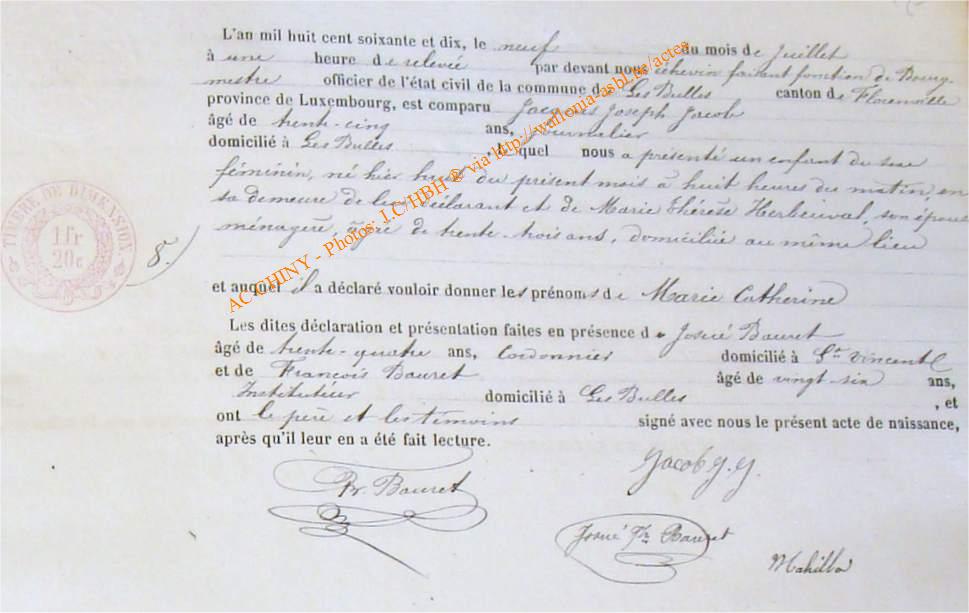 L'an mil huit cent soixante et dix, le neuf du mois de Juillet
à une heure de relevée par devant nous échevin faisant fonction de Bourg-
mestre officier de l'état civil de la commune de Les Bulles canton de Florenville
province de Luxembourg, est comparu Jacques Joseph Jacob
âgé de trente-cinq ans, Journalier
domicilié à Les Bulles, lequel nous a présenté un enfant du sexe
féminin, né hier huit du présent mois à huit heures du matin, en
sa demeure de lui déclarant et de Marie Thérèse Herbeuval, son épouse
ménagère, âgée de trente-trois ans, domiciliée au même lieu
TIMBRE DE DIMENSION
1 fr
20 c
8.)
et auquel il a déclaré vouloir donner les prénoms de Marie Catherine
Les dites déclaration et présentation faites en présence de Josué Bauret
âgé de trente-quatre ans, Cordonnier domicilié à St. Vincent
et de François Bauret âgé de vingt six ans,
Instituteur domicilié à Les Bulles, et
ont le père et les témoins signé avec nous le présent acte de naissance,
après qu'il leur en a été fait lecture.
Fr. Bauret
Jacob J. J.
Josué Bauret
Mahillo
AC CHINY - Photos: LC/HBH @ via http://wallonia-asbl.be/actes